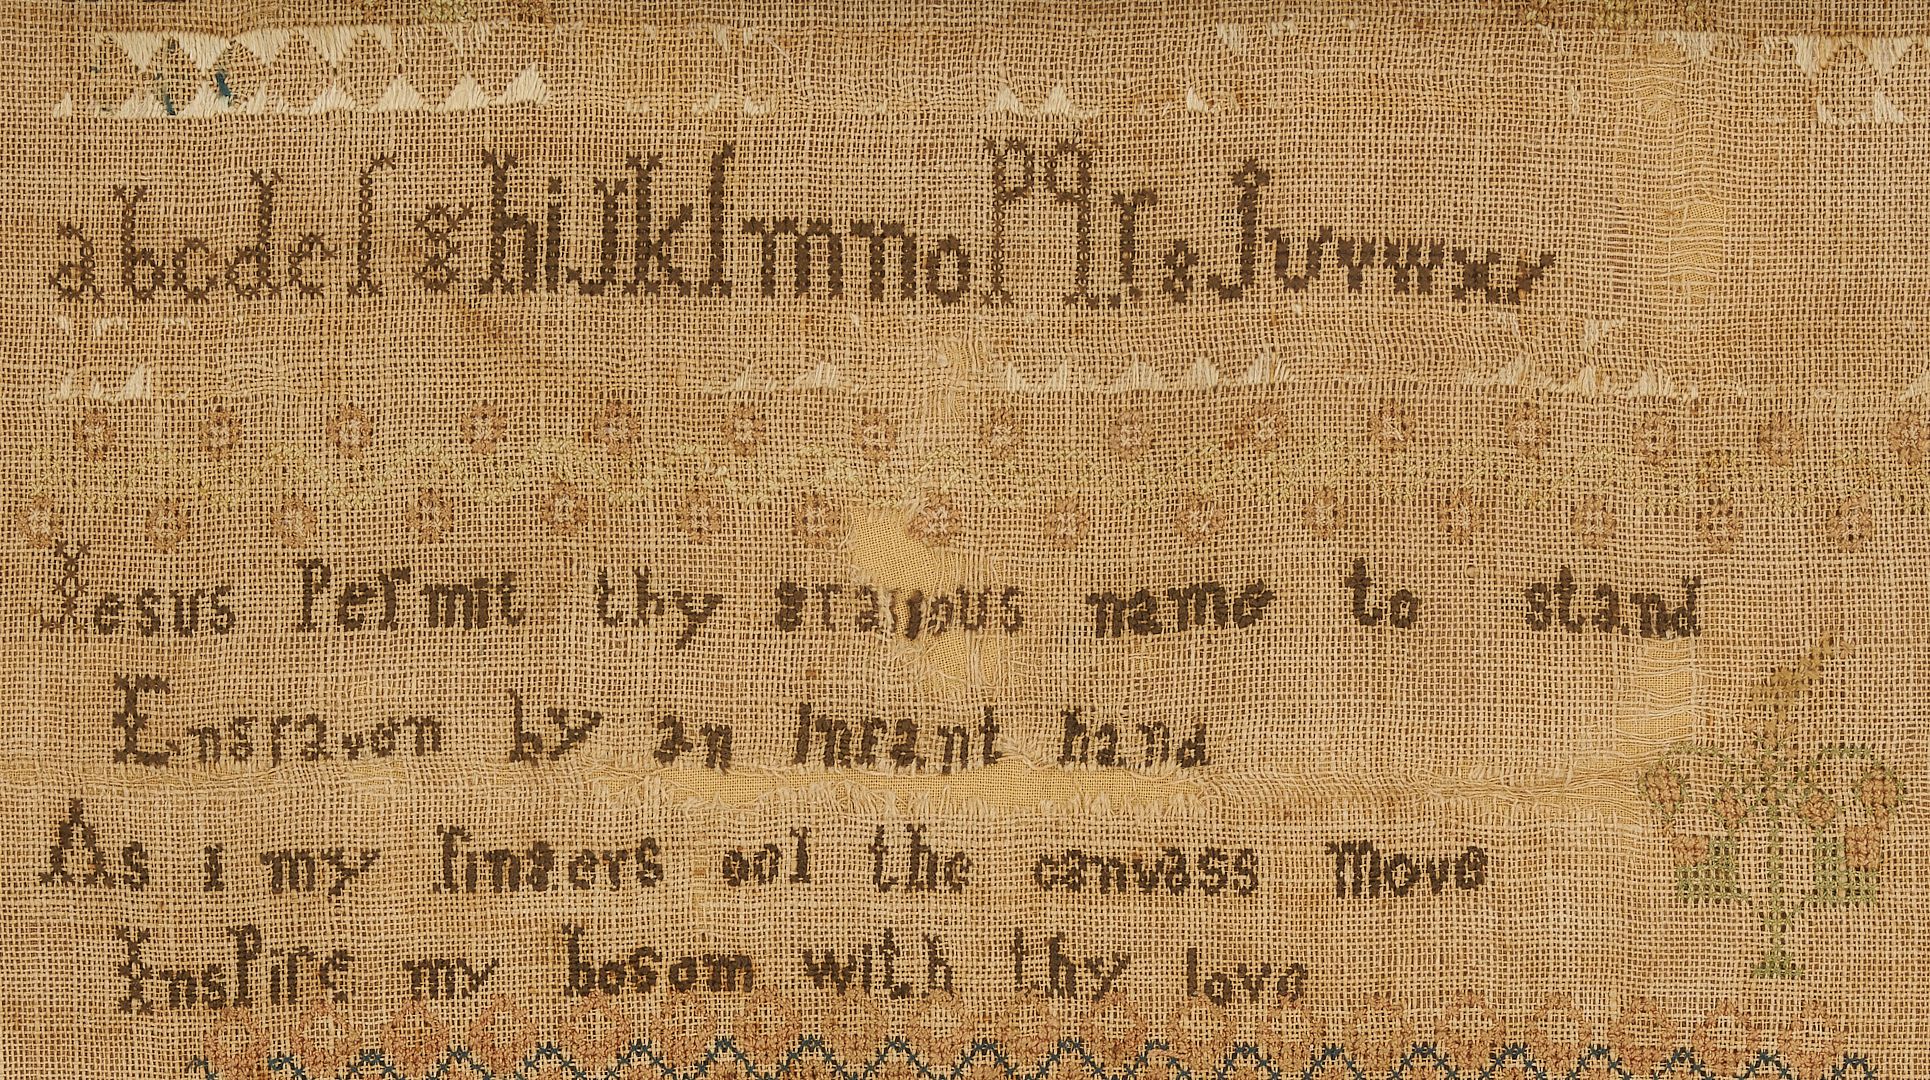 a b c d e f g h i J k l m n o p q r s t u v w x y
Jesus Permit thy gracious name to stand
Engraven by an infant hand
As i my fingers oer the canvass move
Inspire my bosom with thy love